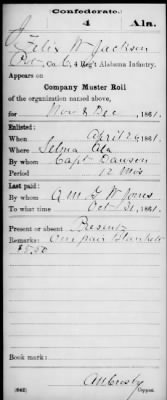 Confederate.
4 Ala.
Felix W Jackson
Pvt, Co. C, 4 Reg't Alabama Infantry.
Appears on
Company Muster Roll
of the organization named above,
for Nov & Dec, 1861.
Enlisted:
When April 26, 1861.
Where Selma Ala
By whom Capt Dawson
Period 12 Mos
Last paid:
By whom A M G W Jones
To what time Oct 31, 1861.
Present or absent Present
Remarks: One pair Blankets
$5.50
Book mark:
(642) Copyist.